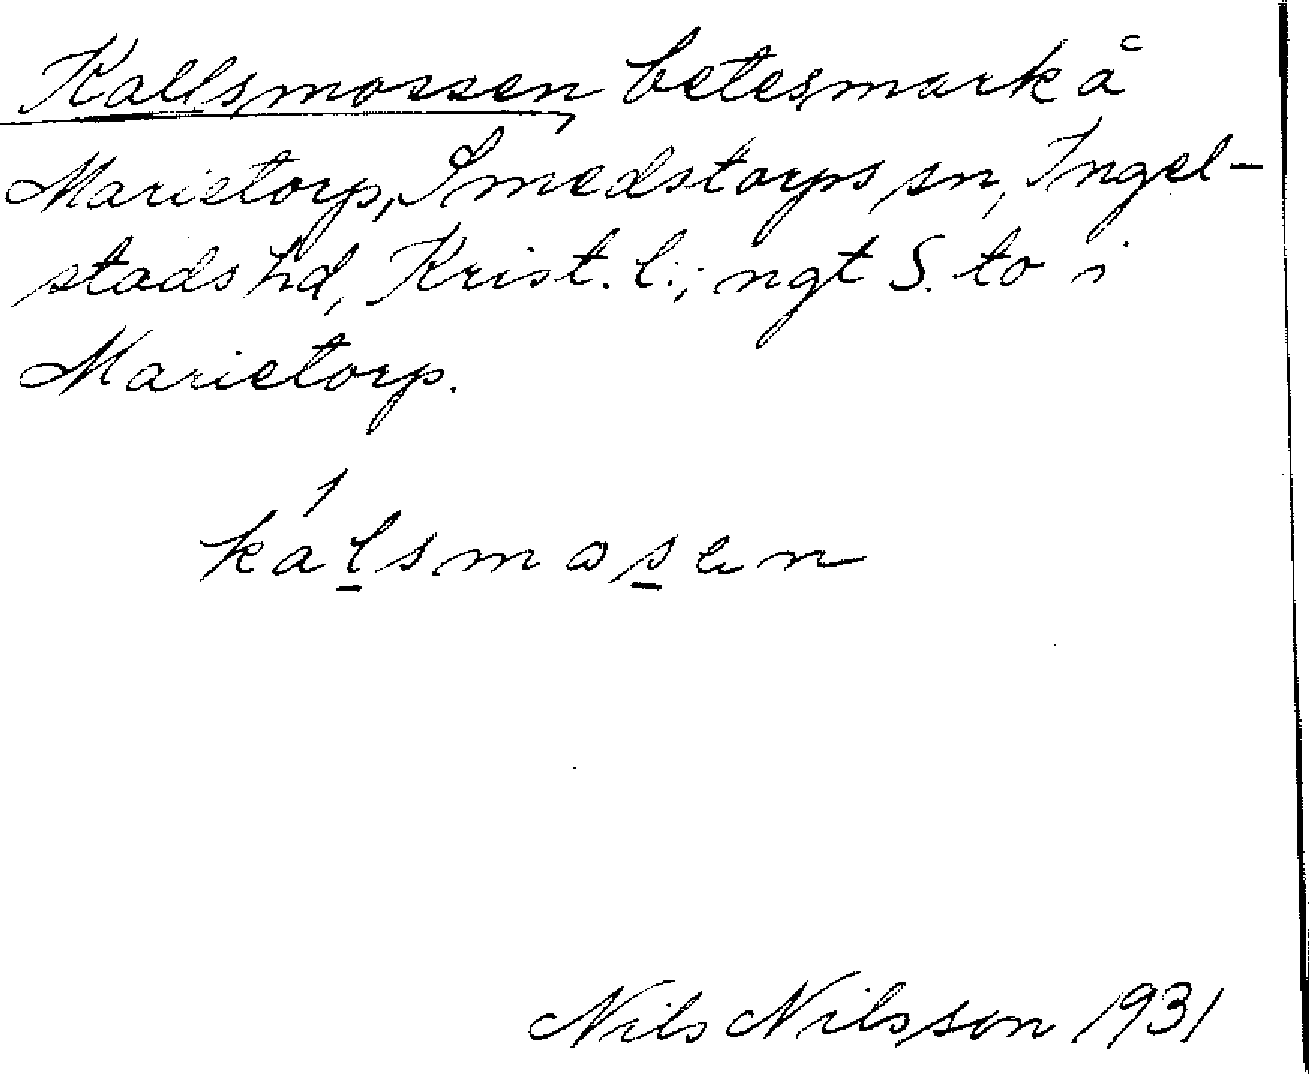 Kallsmossen, betesmark å
Marietorp, Smedstorps sn, Ingel-
stads hd, Krist. l.; ngt S. to i
Marietorp.
kál̲smos̲en
Nils Nilsson 1931